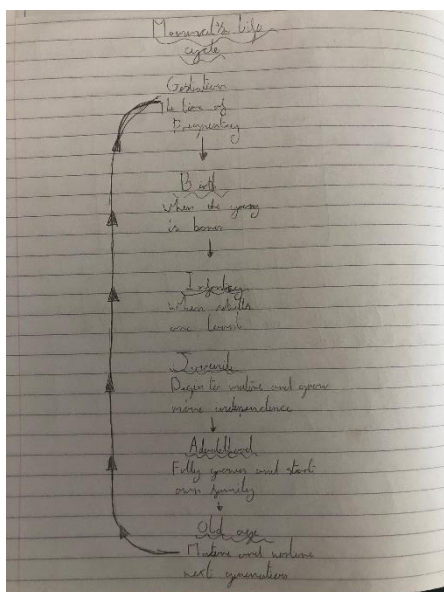 Mammal's life
cycle
Gestation
the time of
Pregnantcy
Birth
when the young
is born
Infantcy
when
are
Juvenile
Began to mature and grow
more independence
Adulthood
Fully grown and start
own family
Old age
Mature and nurture
next generations